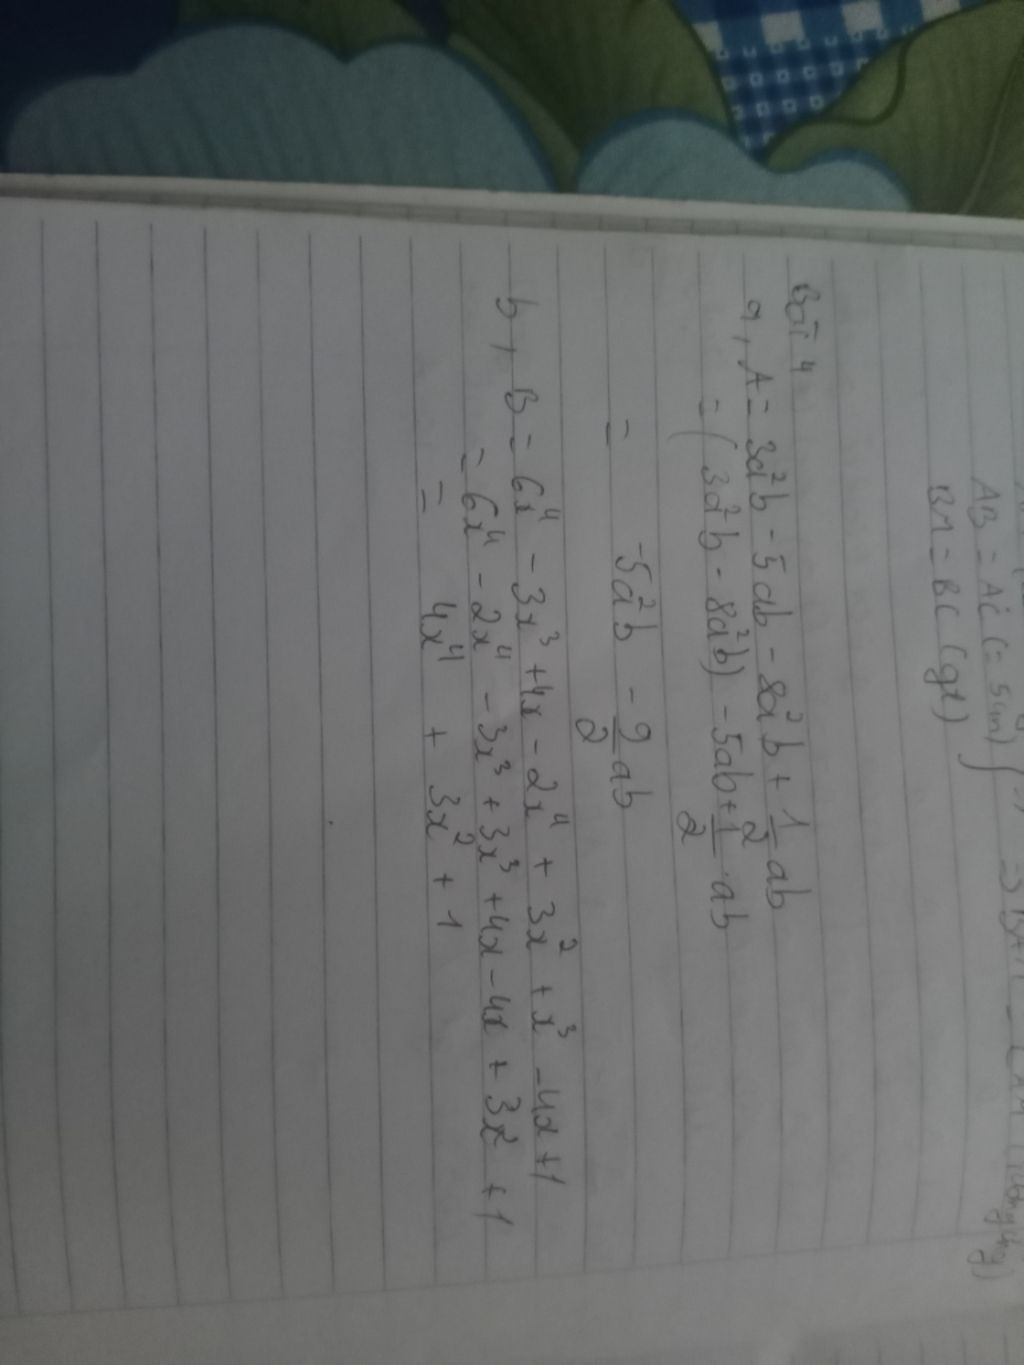 AB = AC (= 5cm)
BM = BC (gt)
Bài 4
a, A = 3a²b - 5ab - 8a²b + 1/2 ab
= (3a²b - 8a²b) - 5ab + 1/2 ab
= -5a²b - 9/2 ab
b, B = 6x⁴ - 3x³ + 4x - 2x⁴ + 3x² + x³ - 4x + 1
= 6x⁴ - 2x⁴ - 3x³ + 3x³ + 4x - 4x + 3x² + 1
= 4x⁴ + 3x² + 1